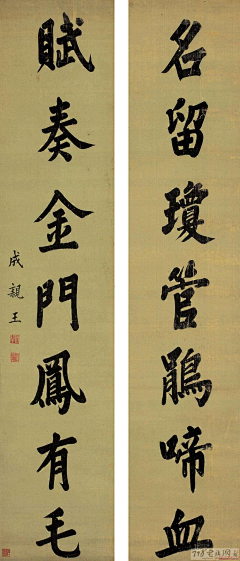 名留瓊管鵑啼血
賦奏金門鳳有毛
成親王